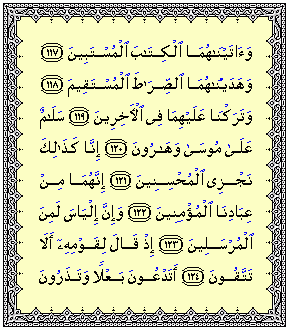 وَءَاتَيْنَٰهُمَا ٱلْكِتَٰبَ ٱلْمُسْتَبِينَ ١١٧
وَهَدَيْنَٰهُمَا ٱلصِّرَٰطَ ٱلْمُسْتَقِيمَ ١١٨
وَتَرَكْنَا عَلَيْهِمَا فِى ٱلْأَخِرِينَ ١١٩ سَلَٰمٌ
عَلَىٰ مُوسَىٰ وَهَٰرُونَ ١٢٠ إِنَّا كَذَٰلِكَ
نَجْزِى ٱلْمُحْسِنِينَ ١٢١ إِنَّهُمَا مِنْ
عِبَادِنَا ٱلْمُؤْمِنِينَ ١٢٢ وَإِنَّ إِلْيَاسَ لَمِنَ
ٱلْمُرْسَلِينَ ١٢٣ إِذْ قَالَ لِقَوْمِهِۦٓ أَلَا
تَتَّقُونَ ١٢٤ أَتَدْعُونَ بَعْلًا وَتَذَرُونَ